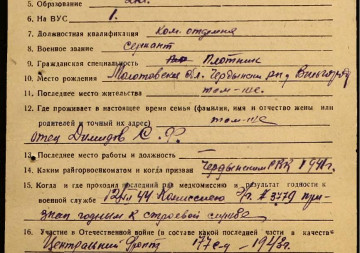 5. Образование
6. На ВУС 1.
7. Должностная квалификация Ком. отделения
8. Военное звание сержант
9. Гражданская специальность Плотник
10. Место рождения Молотовская обл. Чердынский р-н д.
11. Последнее место жительства там-же.
12. Где проживает в настоящее время семья (фамилия, имя и отчество жены или
родителей и точный их адрес) там-же
отец С. Ф.
13. Последнее место работы и должность —
14. Каким райгорвоенкоматом и когда призван Чердынским РВК
15. Когда и где проходил последний раз медкомиссию и результат годности к
военной службе Комиссией при-
знан годным к строевой службе
16. Участие в Отечественной войне (в составе какой последней части и качестве
Центральный фронт 77 сд - 1943г.